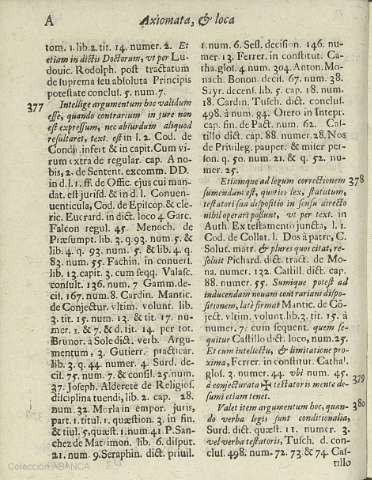 A Axiomata, & loca
tom. 1. lib. 2. tit. 14. numer. 2. Et
etiam in dictis Doctorum, vt per Lu-
douic. Rodolph. post tractatum
de suprema seu absoluta Principis
potestate conclus. 5. num. 7.
377 Intellige argumentum hoc validum
esse, quando contrarium in iure non
est expressum, nec absurdum aliquod
resultaret, text. est in l. 2. Cod. de
Condit. infert & in capit. Cum vi-
rum extra de regular. cap. A no-
bis, 2. de Sentent. excomm. DD.
in d. l. 1. ff. de Offic. eius cui man-
dat. est iurisd. & in d. l. Conuen-
uenticula, Cod. de Episcop. & cle-
ric. Euerard. in dict. loco 4. Garc.
Falcon regul. 45. Menoch. de
Præsumpt. lib. 3. q. 93. num. 5. &
lib. 4. q. 93. num. 5. & lib. 4. q.
83. num. 55. Fachin. in controu.
lib. 13. capit. 3. cum seqq. Valasc.
consult. 136. num. 7. Gamm. de-
cis. 167. num. 8. Cardin. Mantic.
de Coniectur. vltim. volunt. lib.
3. tit. 15. num. 13. & tit. 17. nu-
mer. 1. & 7. & d. tit. 14. per tot.
Brunor. à Sole dict. verb. Argu-
mentum, 3. Gutierr. practicar.
lib. 3. q. 44. numer. 4. Surd. de-
cis. 75. num. 7. & consil. 25. num.
37. Ioseph. Alderete de Religios.
disciplina tuenda, lib. 2. cap. 28.
num. 32. Morla in empor. iuris,
part. 1. titul. 1. quæstion. 3. in fin.
& titul. 5. quæst. 1. num. 41. P. San-
chez de Matrimon. lib. 6. disput.
21. num. 9. Seraphin. dict. priuil.
1. num. 6. Sess. decision. 146. nu-
mer. 13. Ferrer. in constitut. Ca-
tha. glos. 4. num. 304. Anton. Mo-
nach. Bonon. decis. 67. num. 38.
Sayr. decens. lib. 5. cap. 18. num.
18. Cardin. Tusch. dict. conclus.
498. à num. 94. Otero in Interp.
cap. fin. de Pact. num. 62. Cas-
tillo dict. cap. 88. numer. 28. Nos
de Priuileg. pauper. & miser per-
son. q. 50. num. 21. & q. 52. nu-
mer. 25.
Etiamque ad legum correctionem 378
sumendum est, quoties lex, statutum,
testatoris sua dispositio in sensu directo
nihil operari possunt, vt per text. in
Auth. Ex testamento iuncta, l. 1.
Cod. de Collat. l. Dos à patre, C.
Solut. matr. & plures quos citat, re-
soluit Pichard. dict. tract. de Mo-
ra, numer. 122. Castill. dict. cap.
88. numer. 55. Sumique potest ad
inducendam nouam contrariam dispo-
sitionem, latè firmat Mantic. de Co-
iect. vltim. volunt. lib. 3. tit. 15. à
numer. 7. cum sequent. quem se-
quitur Castillo dict. loco, num. 25.
Et cum intellectu, & limitatione pro-
xima, Ferrer. in constitut. Cathal.
glos. 3. numer. 44. vbi num. 45.
à coniecturata testatoris mente de- 379
sumi etiam tenet.
Valet item argumentum hoc, quan- 380
do verba legis sunt conditionalia,
Surd. dict. quæst. 11. numer. 3.
vel verba testatoris, Tusch. d. con-
clus. 498. num. 72. 73. & 74. Cas-
tillo
Colección ABANCA